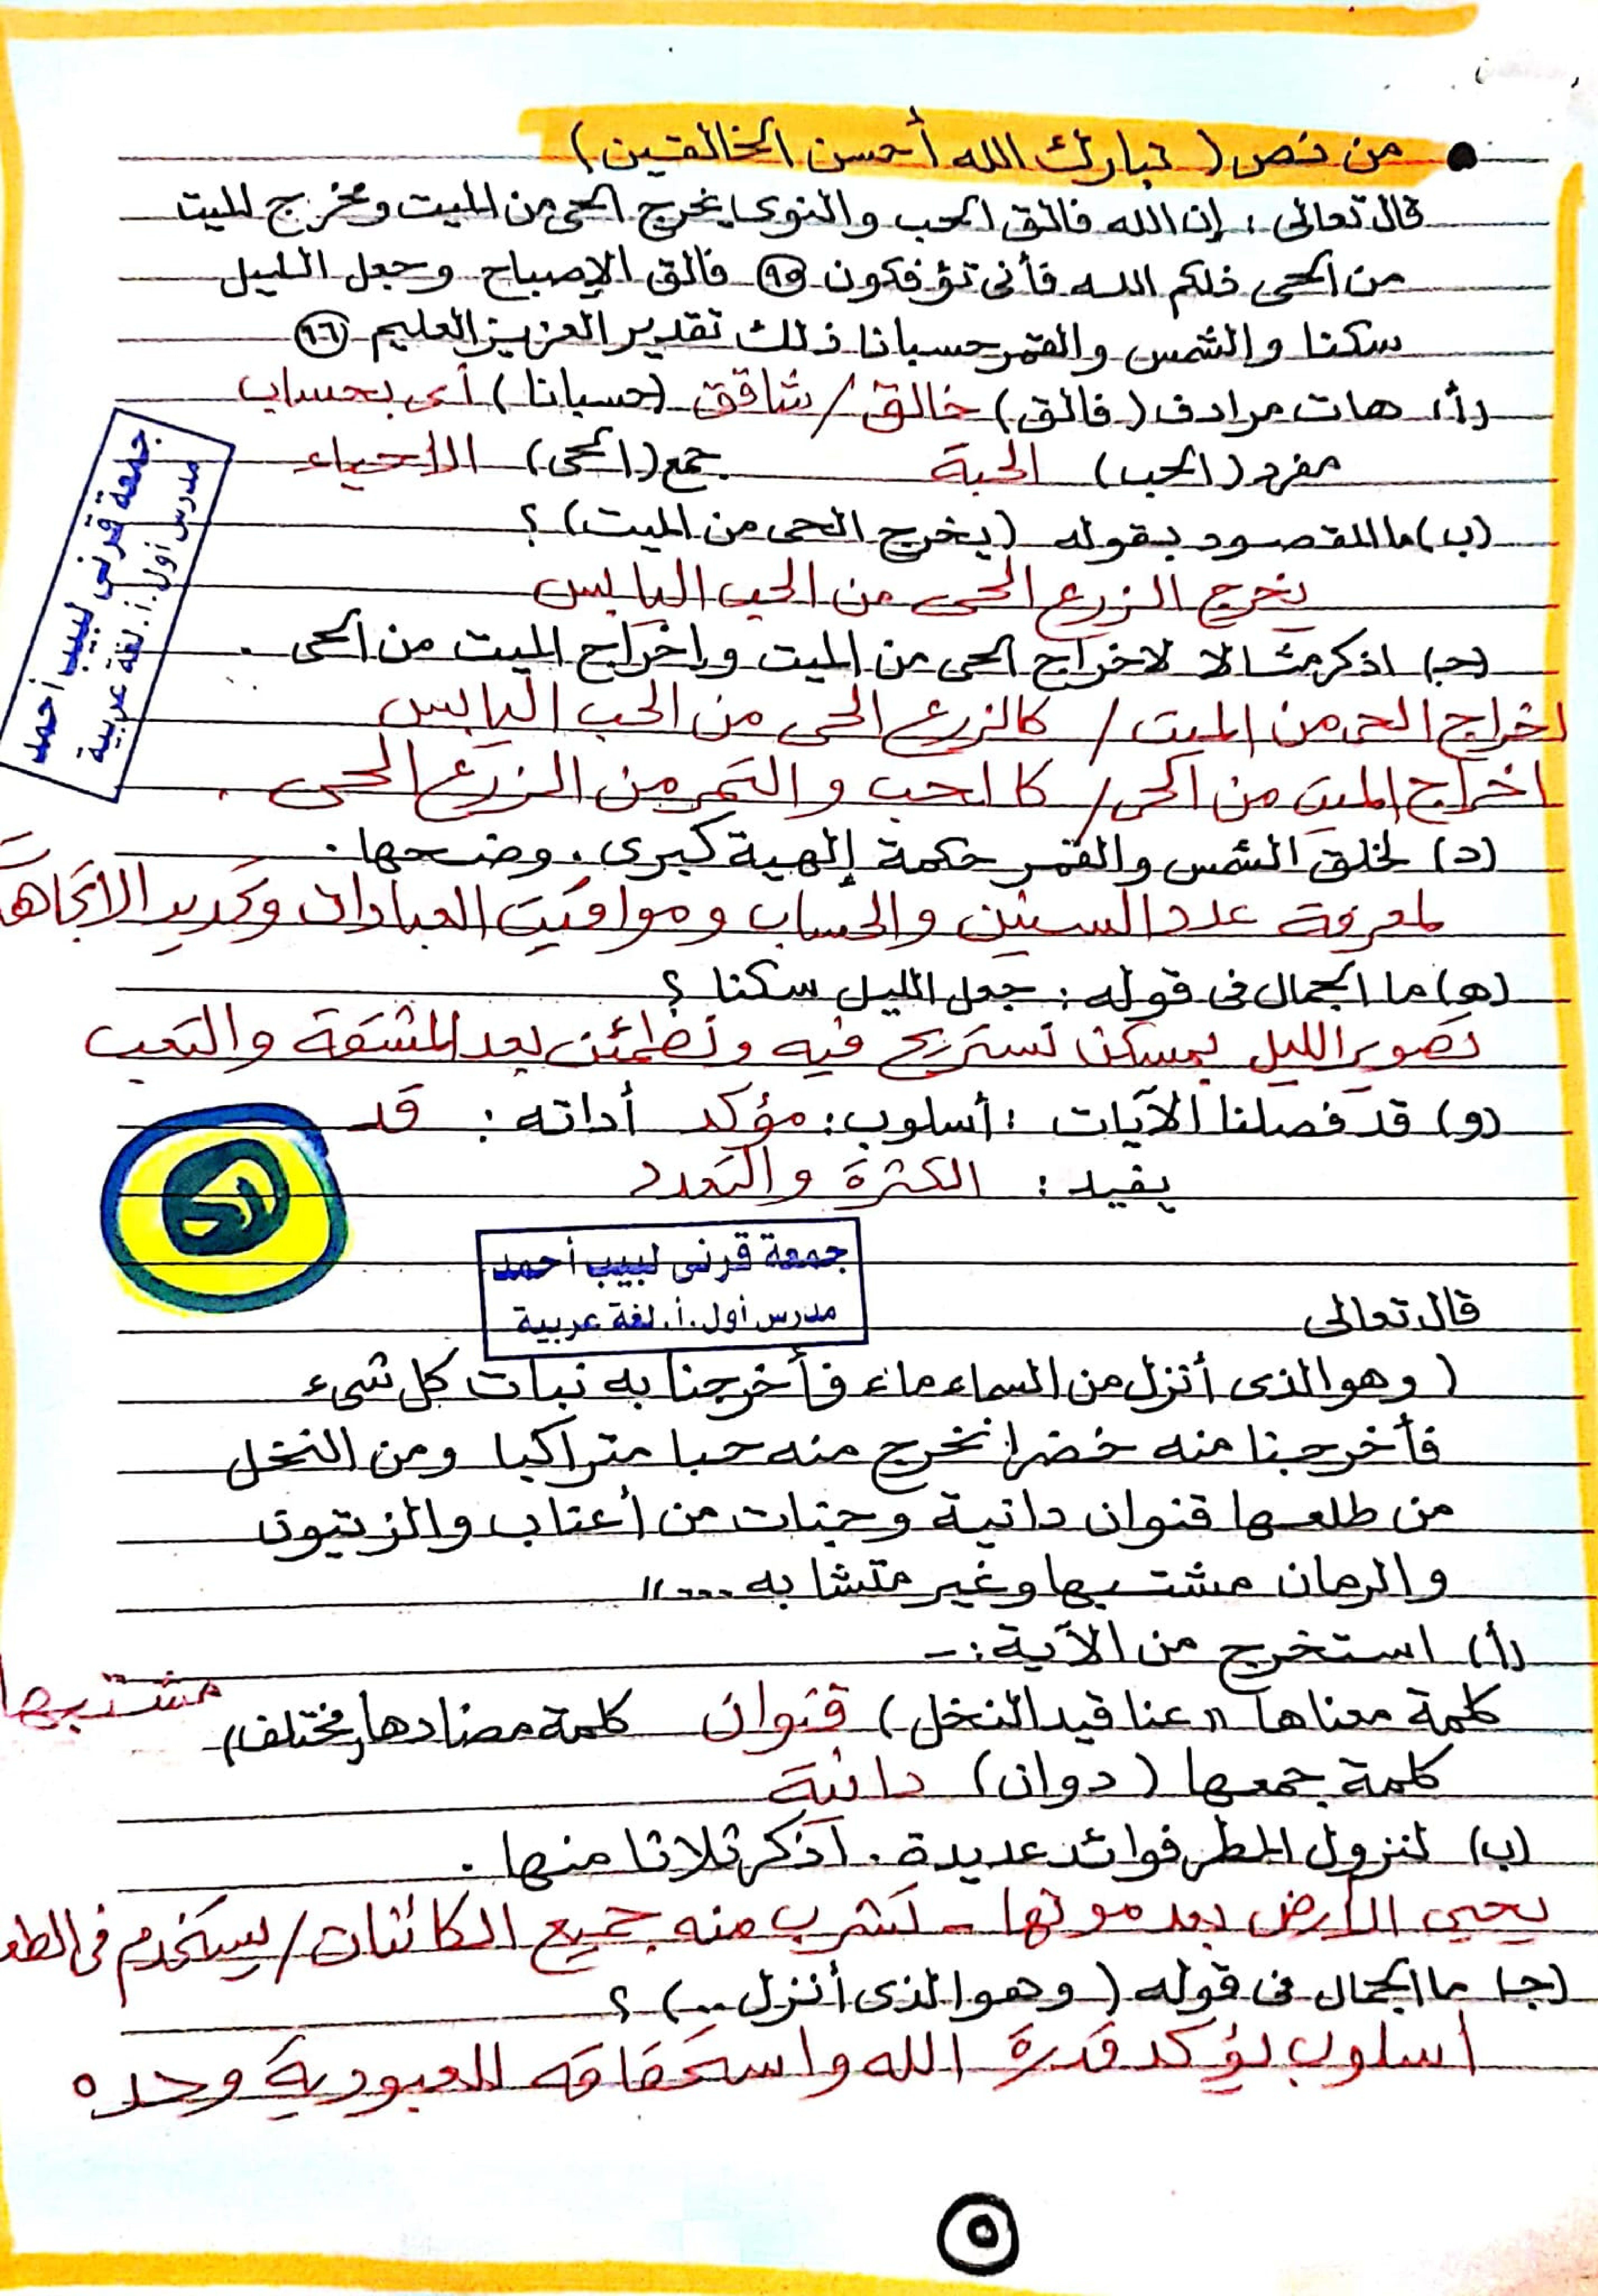 من نص ( تبارك الله أحسن الخالقين )
قال تعالى : إن الله فالق الحب والنوى يخرج الحى من الميت ومخرج الميت
من الحى ذلكم الله فأنى تؤفكون ٩٥ فالق الإصباح وجعل الليل
سكنا والشمس والقمر حسبانا ذلك تقدير العزيز العليم ٩٦
(أ) هات مرادف ( فالق ) خالق / شاقق (حسبانا ) أى بحساب
مفرد ( الحب ) الحبة جمع ( الحى ) الأحياء
(ب) ما المقصود بقوله ( يخرج الحى من الميت ) ؟
يخرج الزرع الحى من الحب اليابس
(جـ) اذكر مثالا لاخراج الحى من الميت واخراج الميت من الحى .
اخراج الحى من الميت / كالزرع الحى من الحب اليابس
اخراج الميت من الحى / كالحب والتمر من الزرع الحى .
(د) لخلق الشمس والقمر حكمة إلهية كبرى . وضحها .
لمعرفة عدد السنين والحساب ومواقيت العبادات وتحديد الاتجاهات
(هـ) ما الجمال فى قوله : جعل الليل سكنا ؟
تصوير الليل بمسكن نستريح فيه ونطمئن بعد المشقة والتعب
(و) قد فصلنا الآيات : أسلوب : مؤكد أداته : قد
يفيد : الكثرة والتعدد
جمعة قرنى لبيب أحمد
مدرس أول . أ . لغة عربية
جمعة قرنى لبيب أحمد
مدرس أول . أ . لغة عربية
قال تعالى
( وهو الذى أنزل من السماء ماء فأخرجنا به نبات كل شىء
فأخرجنا منه خضرا نخرج منه حبا متراكبا ومن النخل
من طلعها قنوان دانية وجنات من أعناب والزيتون
والرمان مشتبها وغير متشابه ....."
(أ) استخرج من الآية :-
كلمة معناها " عناقيد النخل ) قنوان كلمة مضادها ( مختلف ) مشتبها
كلمة جمعها ( دوان ) دانية
(ب) لنزول المطر فوائد عديدة . اذكر ثلاثا منها .
يحيى الأرض بعد موتها - تشرب منه جميع الكائنات / يستخدم فى
(جـ) ما الجمال فى قوله ( وهو الذى أنزل ... ) ؟
أسلوب يؤكد قدرة الله واستحقاقه للعبودية وحده
٥